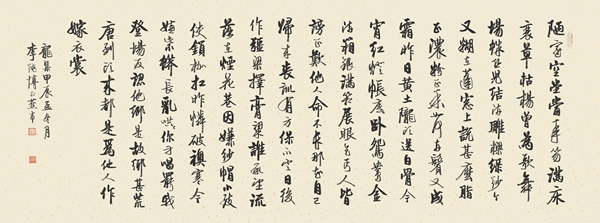 陋室空堂當年笏滿床
衰草枯楊曾為歌舞
場蛛絲兒結滿雕樑綠紗今
又糊在蓬窗上說甚麼脂
正濃粉正香如何兩鬢又成
霜昨日黃土隴頭送白骨今
宵紅燈帳底臥鴛鴦金
滿箱銀滿箱展眼乞丐人皆
謗正歎他人命不長那知自己
歸來喪訓有方保不定日後
作強梁擇膏粱誰承望流
落在煙花巷因嫌紗帽小致
使鎖枷扛昨憐破襖寒今
嫌紫蟒長亂哄哄你方唱罷我
登場反認他鄉是故鄉甚荒
唐到頭來都是為他人作
嫁衣裳
龍集甲辰孟冬月
李